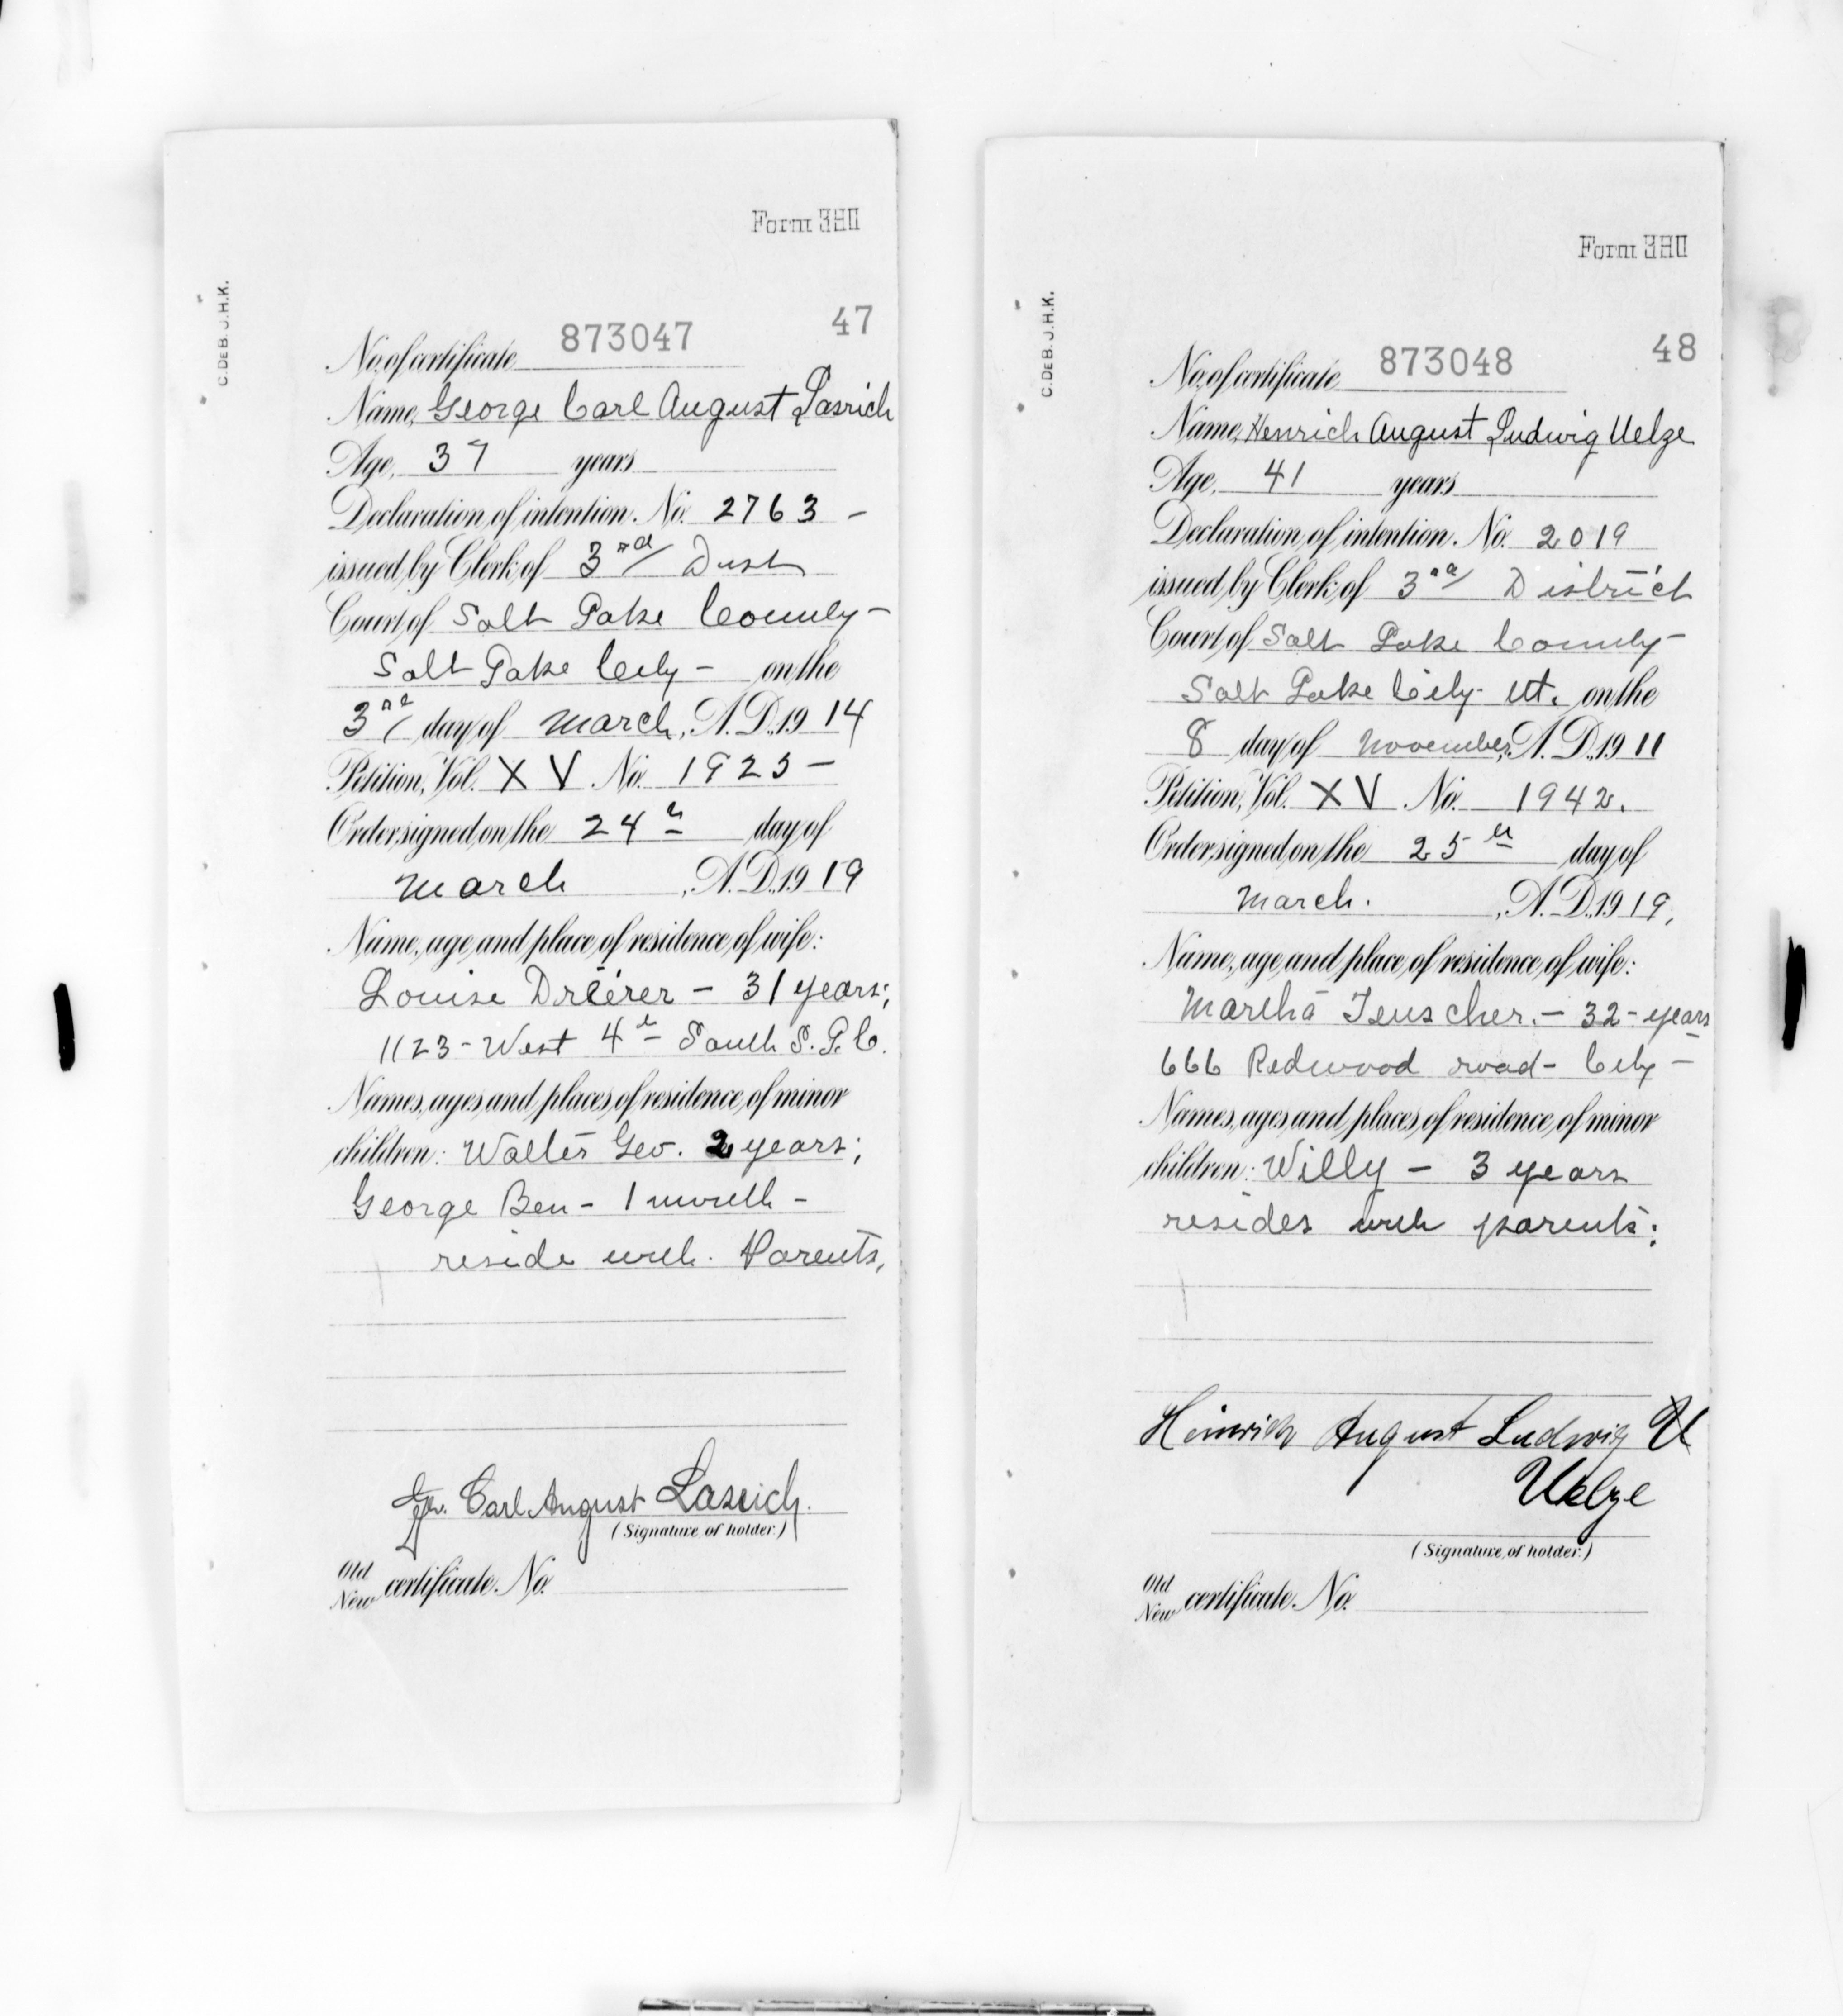 Form 380
C.DEB.J.H.K.
47
No. of certificate 873047
Name, George Carl August Lasrich
Age, 37 years
Declaration of intention No. 2763 -
issued by Clerk of 3rd Dist
Court of Salt Lake County -
Salt Lake City - on the
3rd day of March, A.D. 1914
Petition, Vol. XV No. 1925 -
Order signed on the 24th day of
March, A.D. 1919
Name, age and place of residence of wife:
Louise Dreier - 31 years;
1123 - West 4th South S.L.C.
Names, ages and places of residence of minor
children: Walter Geo. 2 years;
George Ben - 1 month -
reside with Parents,
Geo. Carl August Lasrich.
(Signature of holder.)
Old
New certificate No.
Form 380
C.DEB.J.H.K.
48
No. of certificate 873048
Name, Henrich August Ludwig Uelze
Age, 41 years
Declaration of intention No. 2019
issued by Clerk of 3rd District
Court of Salt Lake County -
Salt Lake City - Ut. on the
8 day of November, A.D. 1911
Petition, Vol. XV No. 1942.
Order signed on the 25th day of
March. , A.D. 1919,
Name, age and place of residence of wife:
Martha Teuscher. - 32 - years
666 Redwood road - City -
Names, ages and places of residence of minor
children: Willy - 3 years
resides with parents;
Heinrich August Ludwig U
Uelze
(Signature of holder.)
Old
New certificate No.